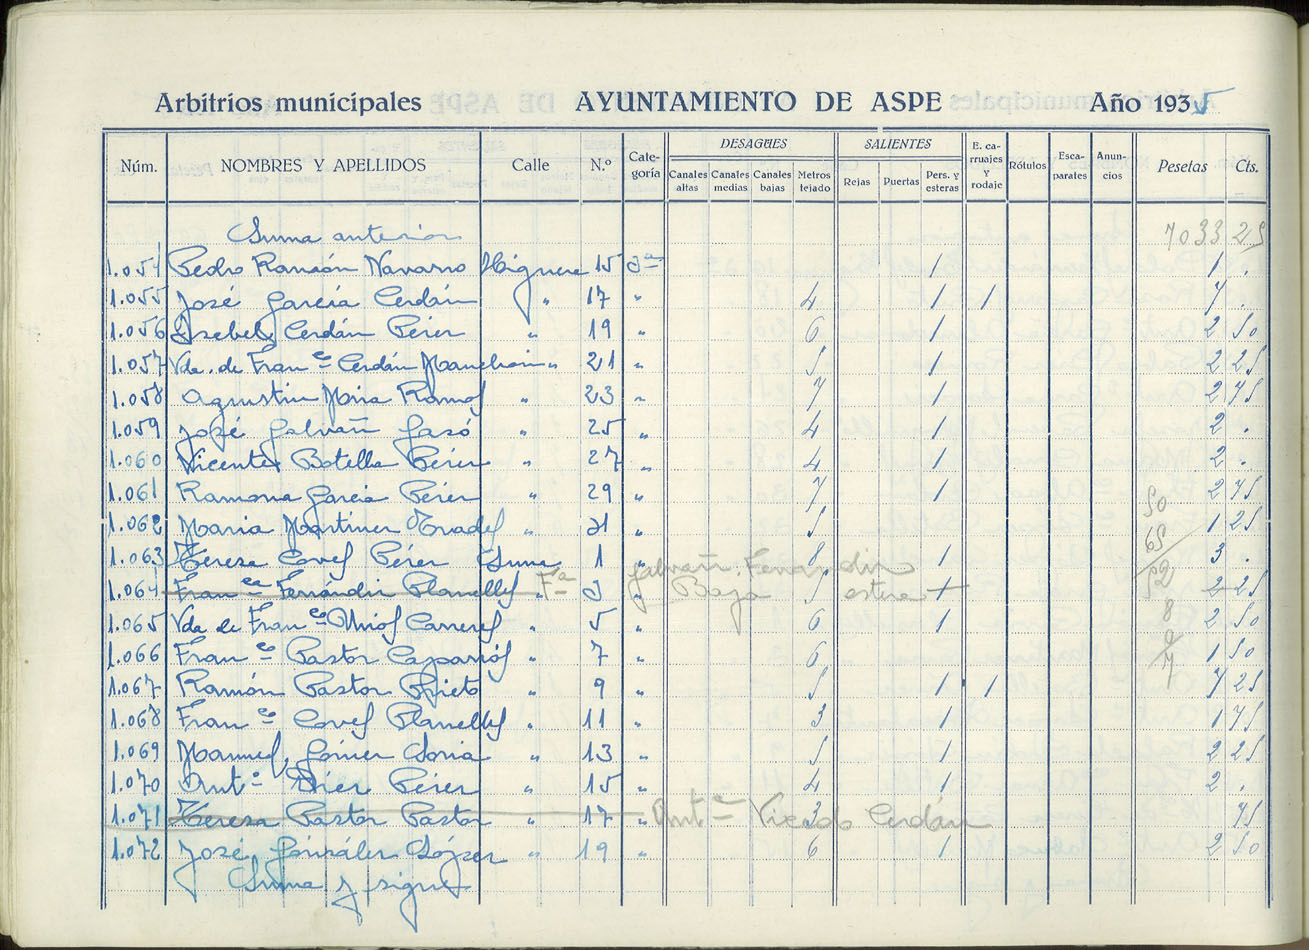 Arbitrios municipales AYUNTAMIENTO DE ASPE Año 1935
Núm. NOMBRES Y APELLIDOS Calle N.º Cate-goría DESAGÜES Canales altas Canales medias Canales bajas Metros tejado SALIENTES Rejas Puertas Pers. y esteras E. ca-rruajes y rodaje Rótulos Esca-parates Anun-cios Pesetas Cts.
Suma anterior 7033 25
1.054 Pedro Ramón Navarro Higuera 15 3ª 1 1 .
1.055 José García Cerdán " 17 " 4 1 1 7
1.056 Isabel Cerdán Pérez " 19 " 6 1 2 50
1.057 Vda. de Fran co Cerdán Manchón " 21 " 5 1 2 25
1.058 Agustin Mira Ramos " 23 " 7 1 2 75
1.059 José Galvañ Gasó " 25 " 4 1 2 .
1.060 Vicente Botella Pérez " 27 " 4 1 2 .
1.061 Ramona García Pérez " 29 " 7 1 2 75
50
1.062 Maria Martinez " 31 " 5 1 25
65
1.063 Teresa Coves Pérez 1 " 8 1 3 .
Galvañ Ferrandiz
1.064 Fran ca Ferrándiz Planelles " Fª 3 " Baja 5 estera 1 2 25
52
1.065 Vda de Fran co Carreres " 5 " 6 1 2 50
8
1.066 Fran co Pastor Caparrós " 7 " 6 1 50
1.067 Ramón Pastor Prieto " 9 " 5 1 1 7 25
1.068 Fran co Coves Planelles " 11 " 3 1 1 75
1.069 Manuel Gómez Soria " 13 " 5 1 2 25
1.070 Ant.º Díez Pérez " 15 " 4 1 2 .
1.071 Teresa Pastor Pastor " 17 " Antª Vicedo Cerdán 3 75
1.072 José González López " 19 " 6 1 2 50
Suma y sigue